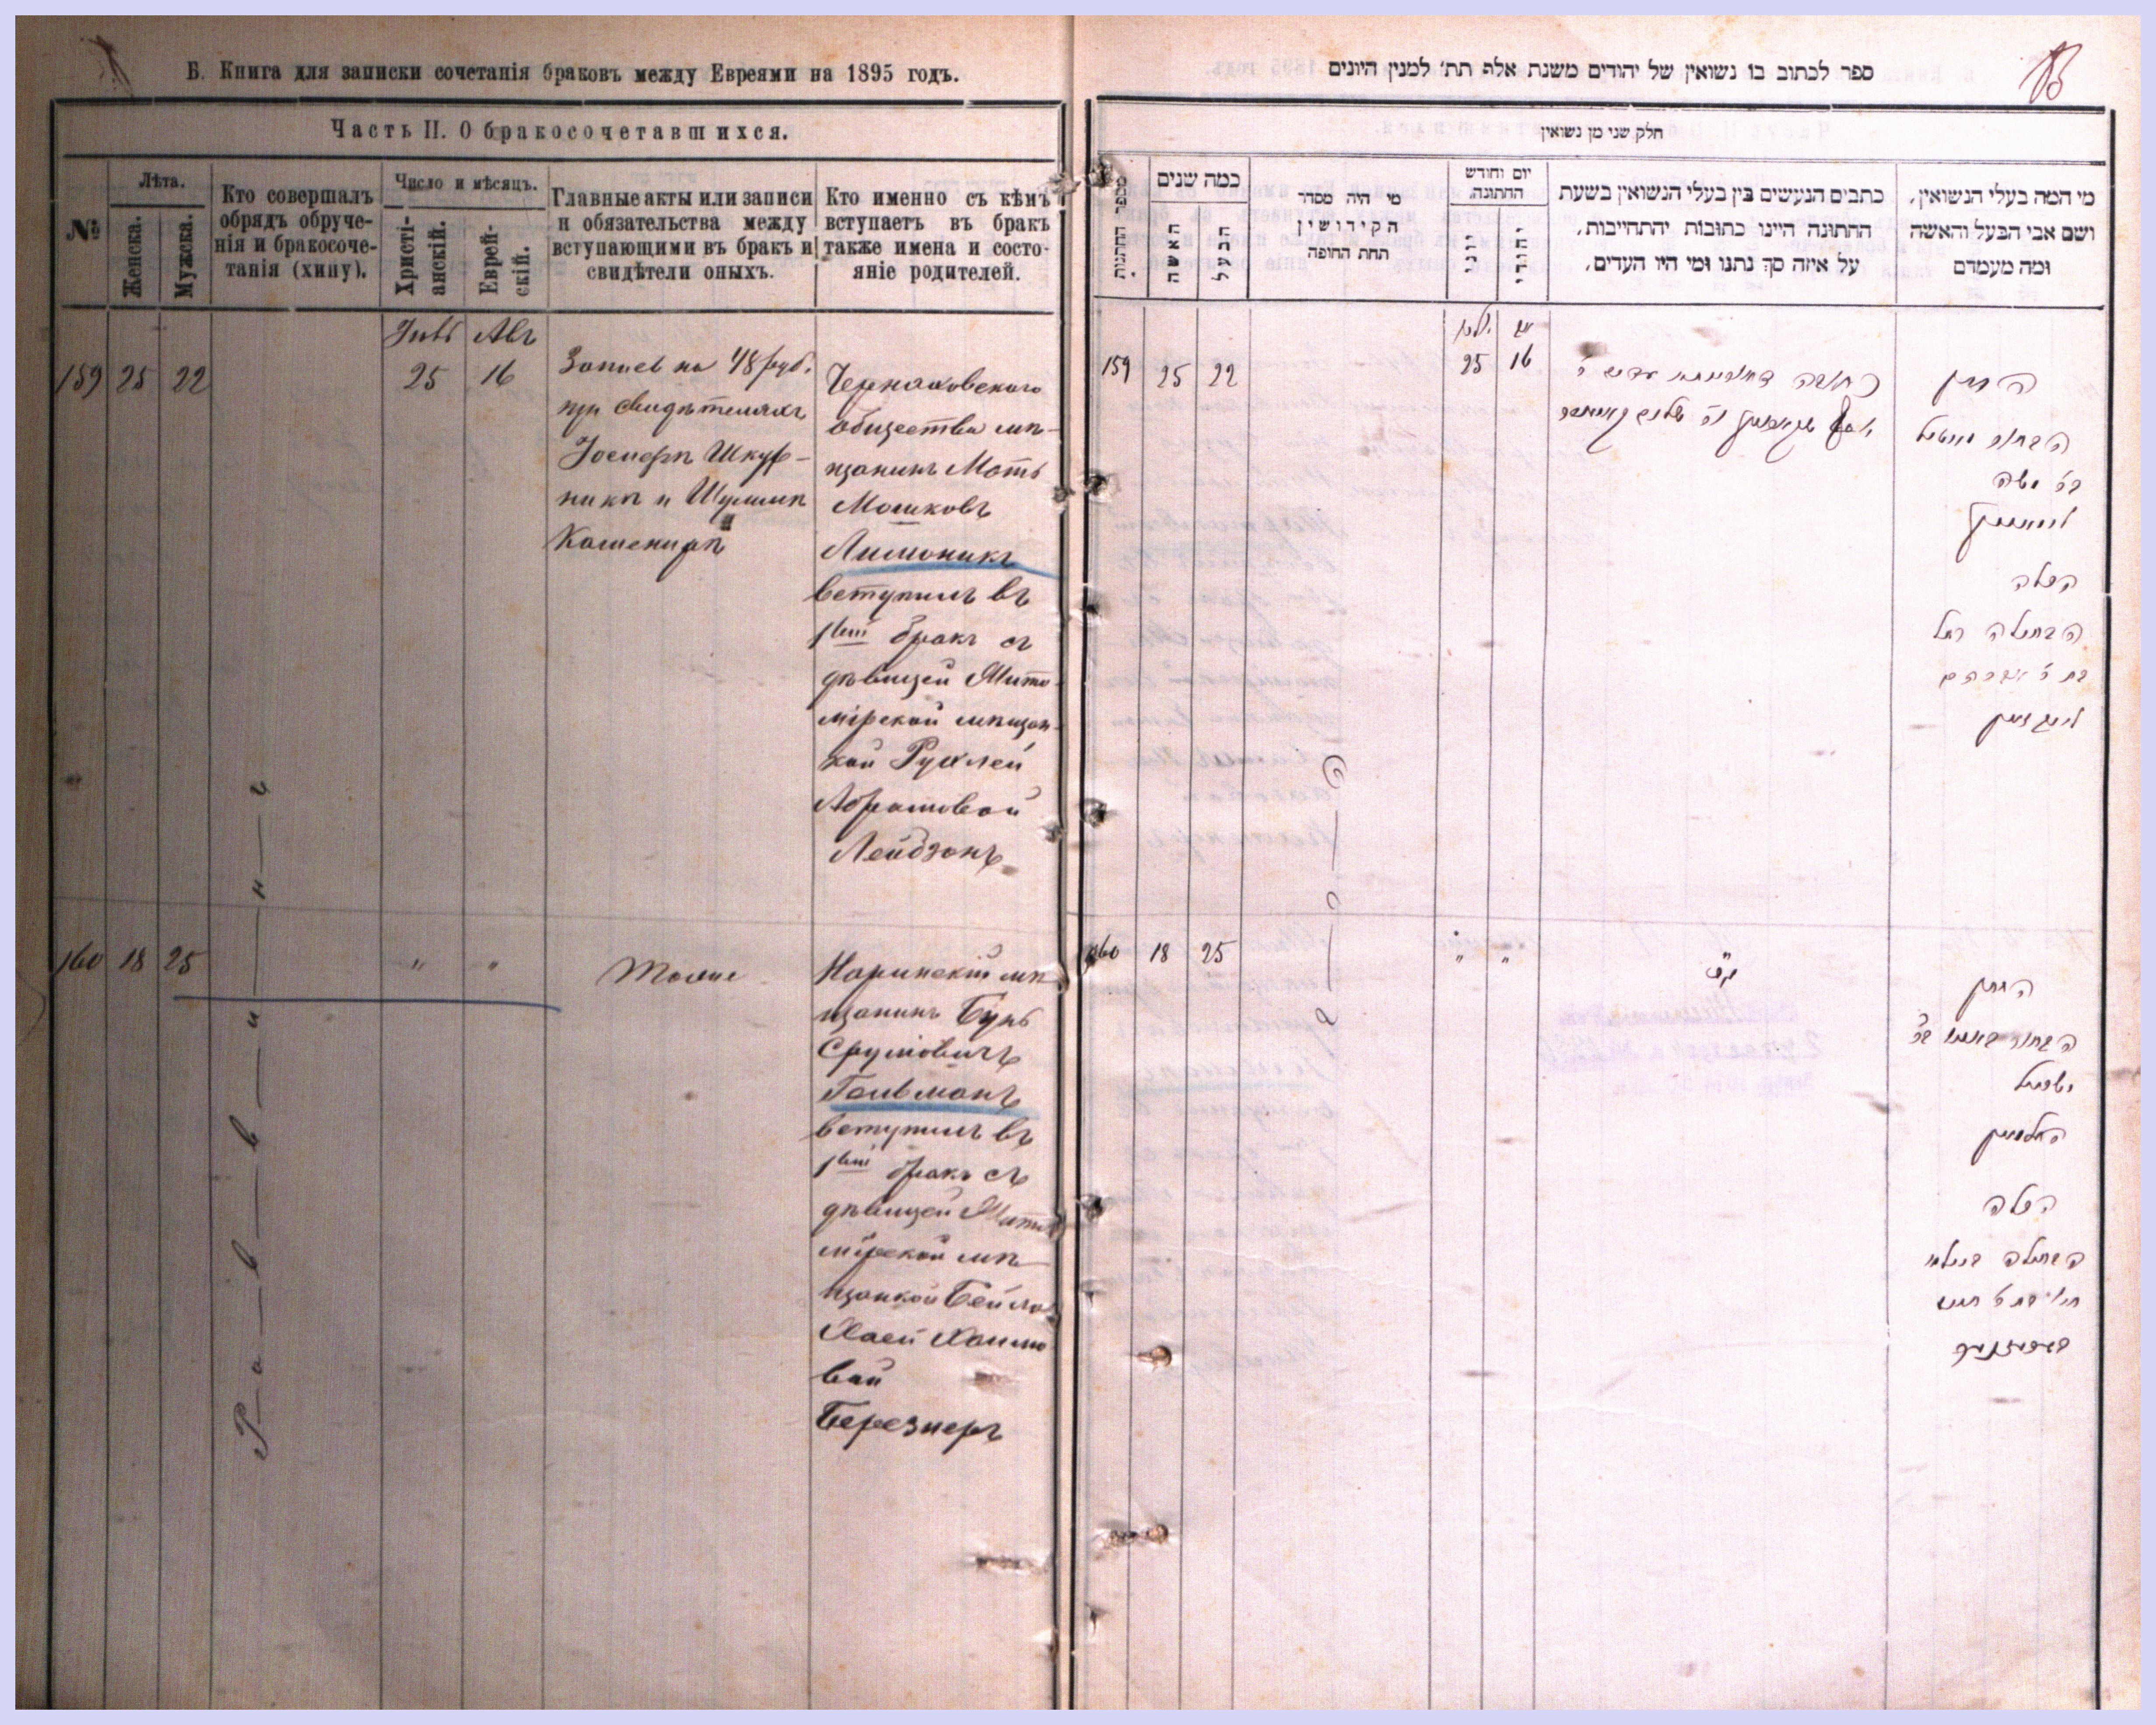 Б. Книга для записки сочетанія браковъ между Евреями на 1895 годъ.
Часть II. О бракосочетавшихся.
№
Лѣта.
Женска.
Мужска.
Кто совершалъ
обрядъ обруче-
нія и бракосоче-
танія (хипу).
Число и мѣсяцъ.
Христі-
анскій.
Еврей-
скій.
Главные акты или записи
и обязательства между
вступающими въ бракъ и
свидѣтели оныхъ.
Кто именно съ кѣмъ
вступаетъ въ бракъ
также имена и состо-
яніе родителей.
Авг
159 25 22 25 16
Запись на 48 руб.
при свидѣтеляхъ
Іосифѣ Шкур-
никѣ и
Черняховскаго
общества мѣ-
щанинъ Моть
Мошковъ
Лимоникъ
вступилъ въ
1вый бракъ съ
дѣвицей Жито-
мірской мѣщан-
кой Рухлей
Абрамовой
Лейбзонъ
160 18 25 " "
Тоже
Норинскій мѣ-
щанинъ Бунь
Сруліовичъ
Гельманъ
вступилъ въ
1вый бракъ съ
дѣвицей Жито
мірской мѣ-
щанкой Бейла
Хаей Хаимо
вой
Березнеръ
Раввинъ
ספר לכתוב בו נשואין של יהודים משנת אלף תת׳ למנין היונים
חלק שני מן נשואין
מספר החתונות
כמה שנים
האשה
הבעל
מי היה מסדר
הקידושין
תחת החופה
יום וחודש
החתונה.
יוני
יהודי
כתבים הנעשים בין בעלי הנשואין בשעת
החתונה היינו כתובות יהתחייבות,
על איזה סך נתנו ומי היו העדים,
מי המה בעלי הנשואין,
ושם אבי הבעל והאשה
ומה מעמדם
יולי אב
159 25 22 25 16
החתן
הבחור מוטיל
בר׳ משה
לימוניק
הכלה
הבתולה רחל
בת ר׳ אברהם
לייבזאן
160 18 25 " "
החתן
ישראל
העלמאן
הכלה
הבתולה ביילא
חי׳ בת ר׳ חיים